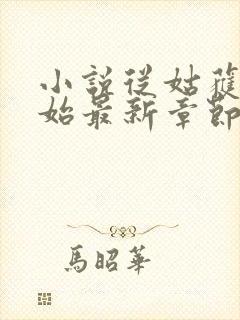 小說從姑獲
始最新章節
馬昭華